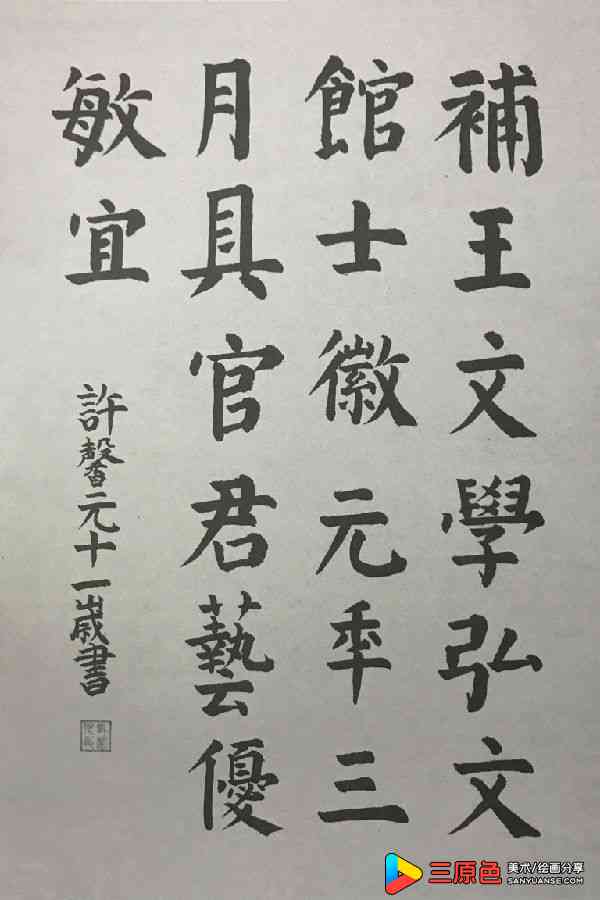 補王文學弘文
館士徽元年三
月具官君藝優
敏宜
許馨元十一歲書
三原色 美术/绘画分享
SANYUANSE.COM